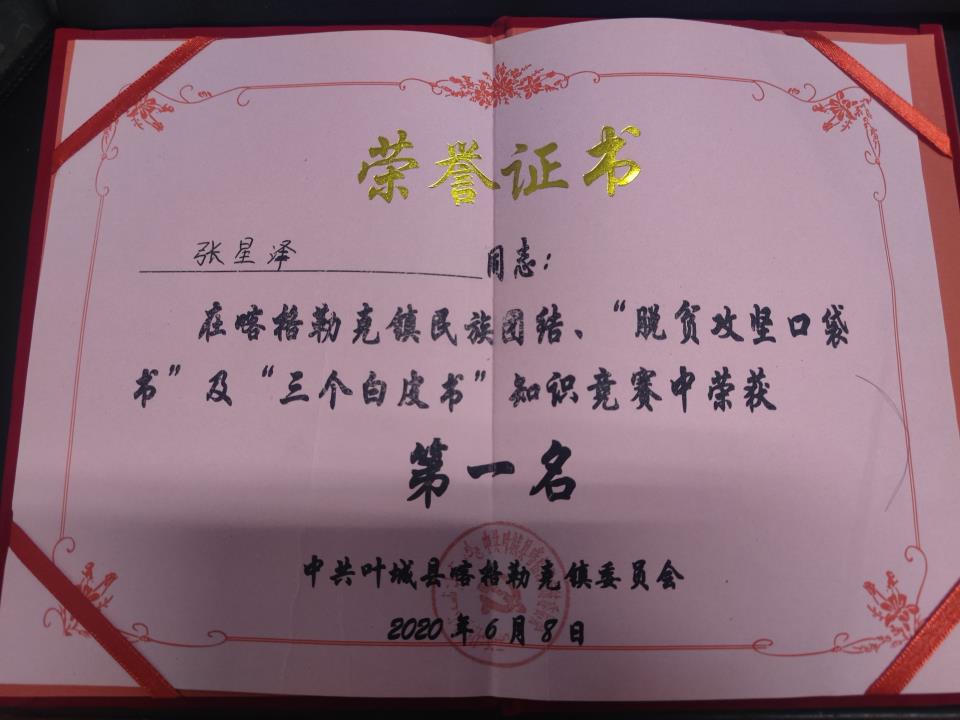 荣誉证书
张星泽 同志：
在喀格勒克镇民族团结、“脱贫攻坚口袋
书”及“三个白皮书”知识竞赛中荣获
第一名
中共叶城县喀格勒克镇委员会
2020年6月8日